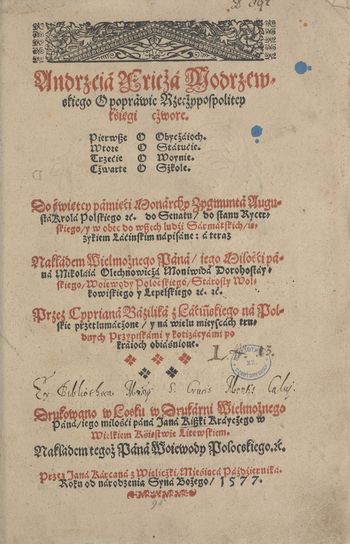 Andrzeiá Fricżá Modrzew-
skiego O popráwie Rzecżypospolitey
kśięgi cżwore.
Pierwsze O Obycżáioch.
Wtore O Státućie.
Trzećie O Woynie.
Cżwarte O Szkole.
Do świętey pámięći Monárchy Zygmuntá Augu-
stá Krolá Polskiego ꝛc. do Senatu/ do stanu Rycer-
skiego/ y w obec do wszech ludzi Sármátskich/ ię-
zykiem Łáćinskim nápisáne: á teraz
Nakłádem Wielmożnego Páná/ iego Miłośći pá-
ná Mikołáiá Olechnowicżá Moniwidá Dorohostáy-
skiego/ Woiewody Połocskiego/ Stárosty Woł-
kowiskiego y Lepelskiego ꝛc. ꝛc.
Przez Cypryaná Bázyliká z Łáćińskiego ná Pol-
skie przetłumácżone/ y ná wielu mieyscách tru-
dnych Przypiskámi y kotizácyámi po
kráioch obiáśnione.
Ex Bibliotheca S. Crucis Montis Calui
Drukowano w Łosku w Drukárni Wielmożnego
Páná/ iego miłośći páná Janá Kiszki Kráycżego w
Wielkiem Kśięstwie Litewskiem.
Nakłádem tegoż Páná Woiewody Połocskiego. ꝛc.
Przez Janá Kárcaná z Wielicżki/ Mieśiącá Páźdźierniká.
Roku od národzenia Syná Bożego/ 1577.